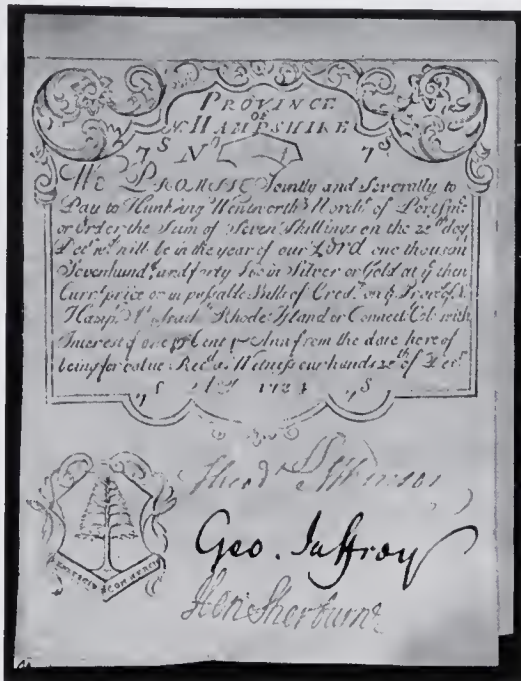 PROVINCE
OF
N. HAMPSHIRE
7S Nº 7S
We PROMISE Jointly and Severally to
Pay to Hunking Wentworth Merchᵗ of Portsmº
or Order the Sum of Seven Shillings on the 25ᵗʰ day
Decʳ wᶜʰ will be in the year of our Lord one thousand
Sevenhundᵈ and forty Six in Silver or Gold at yᵉ then
Currᵗ price or in passable Bills of Credᵗ on yᵉ Provᶜᵉ of N
Hampʳ Rhode Island or Connectᵗ Colº with
Interest of one pʳ Cent pʳ Ann from the date here of
being for value Recᵈ Witness our hands 25ᵗʰ of Decʳ
7S 1734 7S
Theodʳ Atkinson
Geo. Jaffrey
Hen: Sherburne
COMMERCE